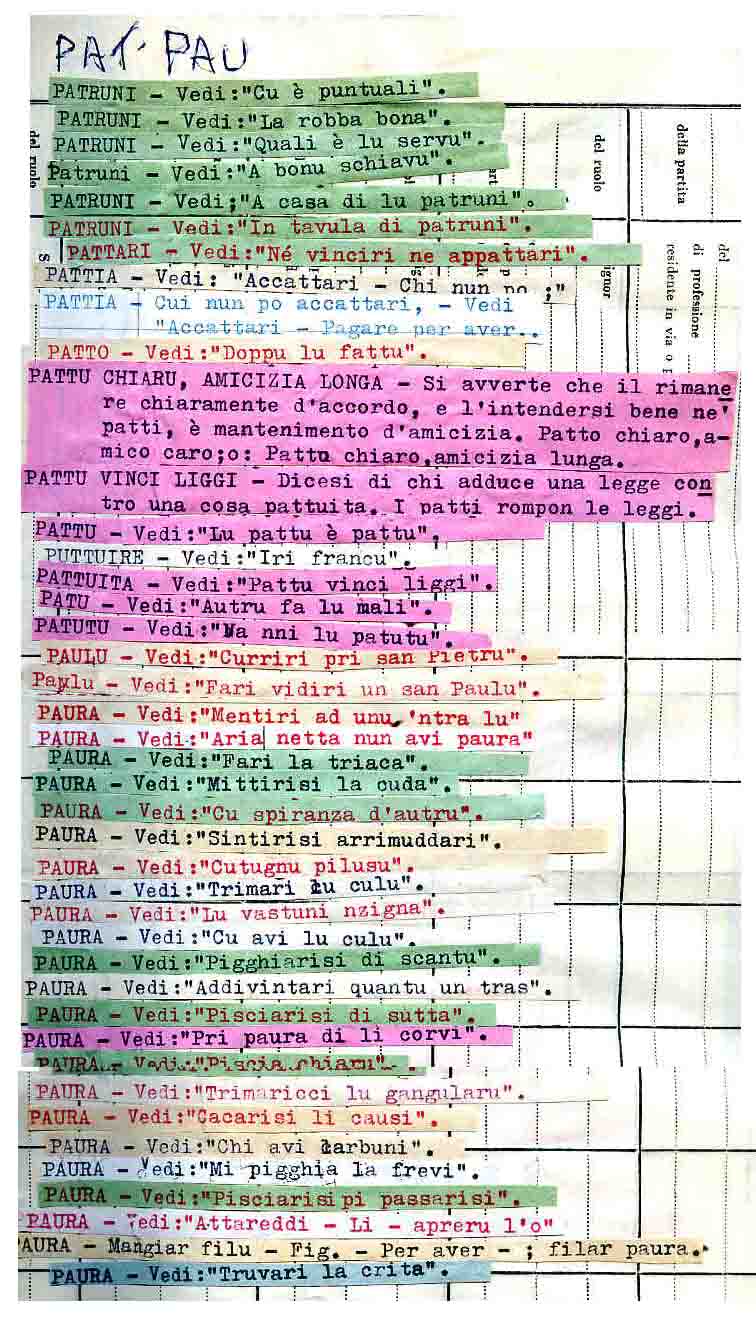 PAT· PAU
PATRUNI - Vedi:"Cu è puntuali".
PATRUNI - Vedi:"La robba bona".
PATRUNI - Vedi:"Quali è lu servu".
Patruni - Vedi:"A bonu schiavu".
PATRUNI - Vedi;"A casa di lu patruni".
PATRUNI - Vedi:"In tavula di patruni".
PATTARI - Vedi:"Né vinciri ne appattari".
PATTIA - Vedi: "Accattari - Chi nun po ;"
PATTIA - Cui nun po accattari, - Vedi
"Accattari - Pagare per aver..
PATTO - Vedi:"Doppu lu fattu".
PATTU CHIARU, AMICIZIA LONGA - Si avverte che il rimane
re chiaramente d'accordo, e l'intendersi bene ne'
patti, è mantenimento d'amicizia. Patto chiaro,a-
mico caro;o: Pattu chiaro,amicizia lunga.
PATTU VINCI LIGGI - Dicesi di chi adduce una legge con
tro una cosa pattuita. I patti rompon le leggi.
PATTU - Vedi:"Lu pattu è pattu".
PUTTUIRE - Vedi:"Iri francu".
PATTUITA - Vedi:"Pattu vinci liggi".
PATU - Vedi:"Autru fa lu mali".
PATUTU - Vedi:"Va nni lu patutu".
PAULU - Vedi:"Curriri pri san Pietru".
Paulu - Vedi:"Fari vidiri un san Paulu".
PAURA - Vedi:"Mentiri ad unu 'ntra lu"
PAURA - Vedi:"Aria netta nun avi paura"
PAURA - Vedi:"Fari la triaca".
PAURA - Vedi:"Mittirisi la cuda".
PAURA - Vedi:"Cu spiranza d'autru".
PAURA - Vedi:"Sintirisi arrimuddari".
PAURA - Vedi:"Cutugnu pilusu".
PAURA - Vedi:"Trimari lu culu".
PAURA - Vedi:"Lu vastuni nzigna".
PAURA - Vedi:"Cu avi lu culu".
PAURA - Vedi:"Pigghiarisi di scantu".
PAURA - Vedi:"Addivintari quantu un tras".
PAURA - Vedi:"Pisciarisi di sutta".
PAURA - Vedi:"Pri paura di li corvi".
PAURA - Vedi:
PAURA - Vedi:"Trimaricci lu gangularu".
PAURA - Vedi:"Cacarisi li causi".
PAURA - Vedi:"Chi avi carbuni".
PAURA - Vedi:"Mi pigghia la frevi".
PAURA - Vedi:"Pisciarisi pi passarisi".
PAURA - Vedi:"Attareddi - Li - apreru l'o"
AURA - Mangiar filu - Fig. - Per aver - ; filar paura.
PAURA - Vedi:"Truvari la crita".
della partita
del ruolo
del ruolo
del
di professione
residente in via o
ignor